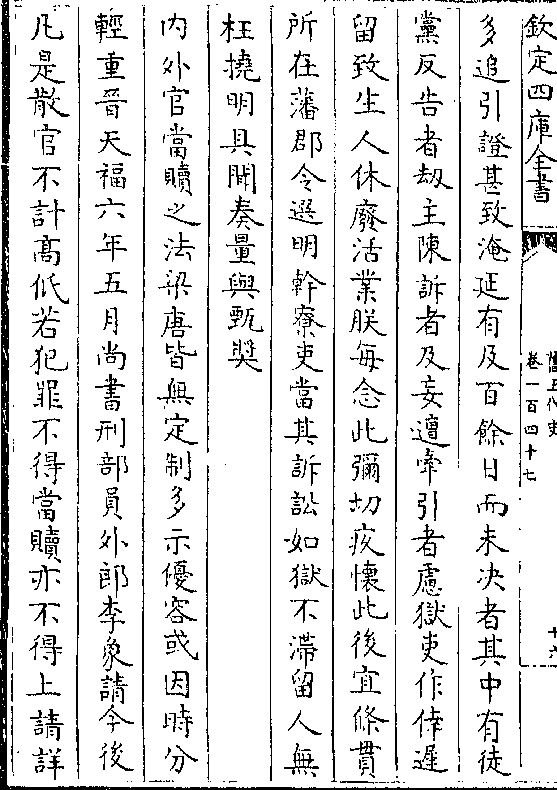 欽定四庫全書
舊五代史
卷一百四十七
十六
多追引證甚致淹延有及百餘日而未決者其中有徒
黨反告者劫主陳訴者及妄遭牽引者慮獄吏作倖遲
留致生人休廢活業朕每念此彌切疚懷此後宜條貫
所在藩郡令選明幹寮吏當其訴訟如獄不滯留人無
枉撓明具聞奏量與甄奬
内外官當贖之法梁唐皆無定制多示優容或因時分
輕重晉天福六年五月尚書刑部員外郎李象請今後
凡是散官不計高低若犯罪不得當贖亦不得上請詳